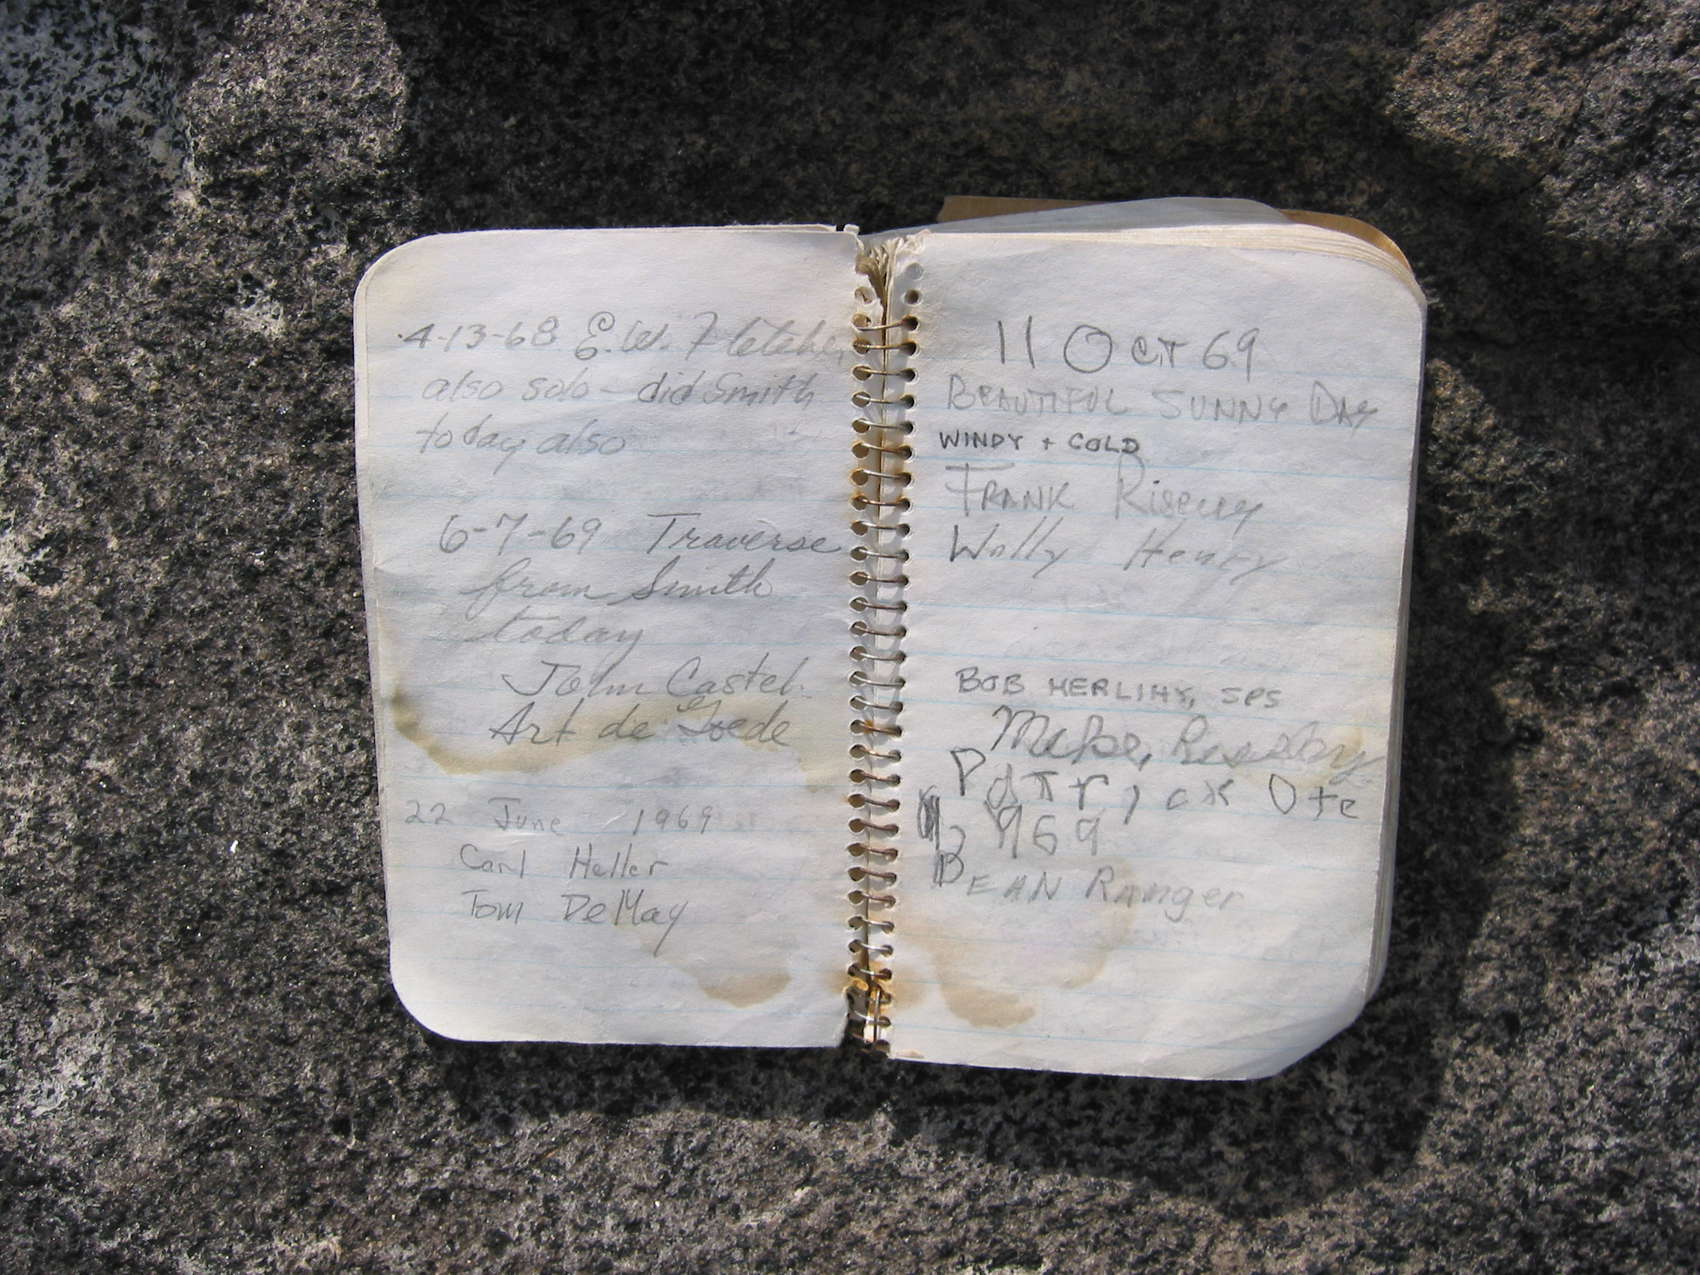 4-13-68 E.W. Fletcher
also solo - did Smith
today also
6-7-69 Traverse
from Smith
today
John Castel
Art de Goede
22 June 1969
Carl Heller
Tom DeMay
11 Oct 69
BEAUTIFUL SUNNY DAY
WINDY + COLD
FRANK
Wally Henry
BOB HERLIHY, SPS
Patrick Ote
1969
DEAN Ranger